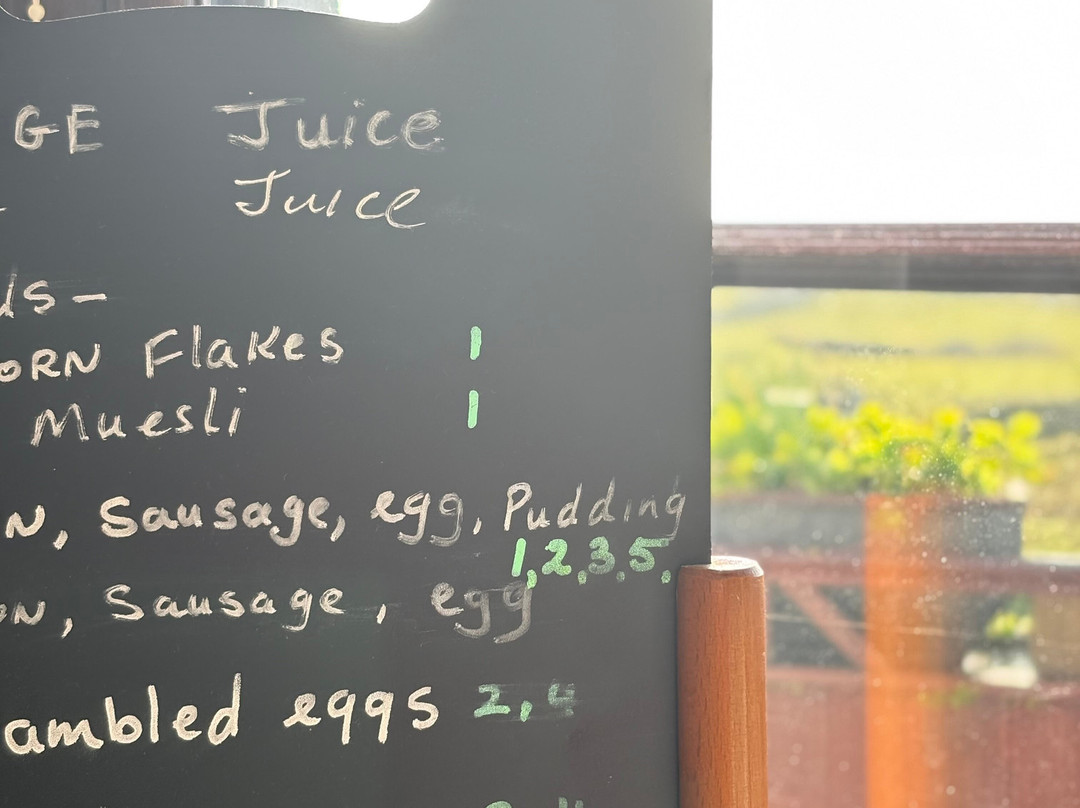 GE Juice
Juice
ls-
ORN Flakes 1
Muesli 1
N, Sausage, egg, Pudding
1,2,3,5.
ON, Sausage, egg
ambled eggs 2,4